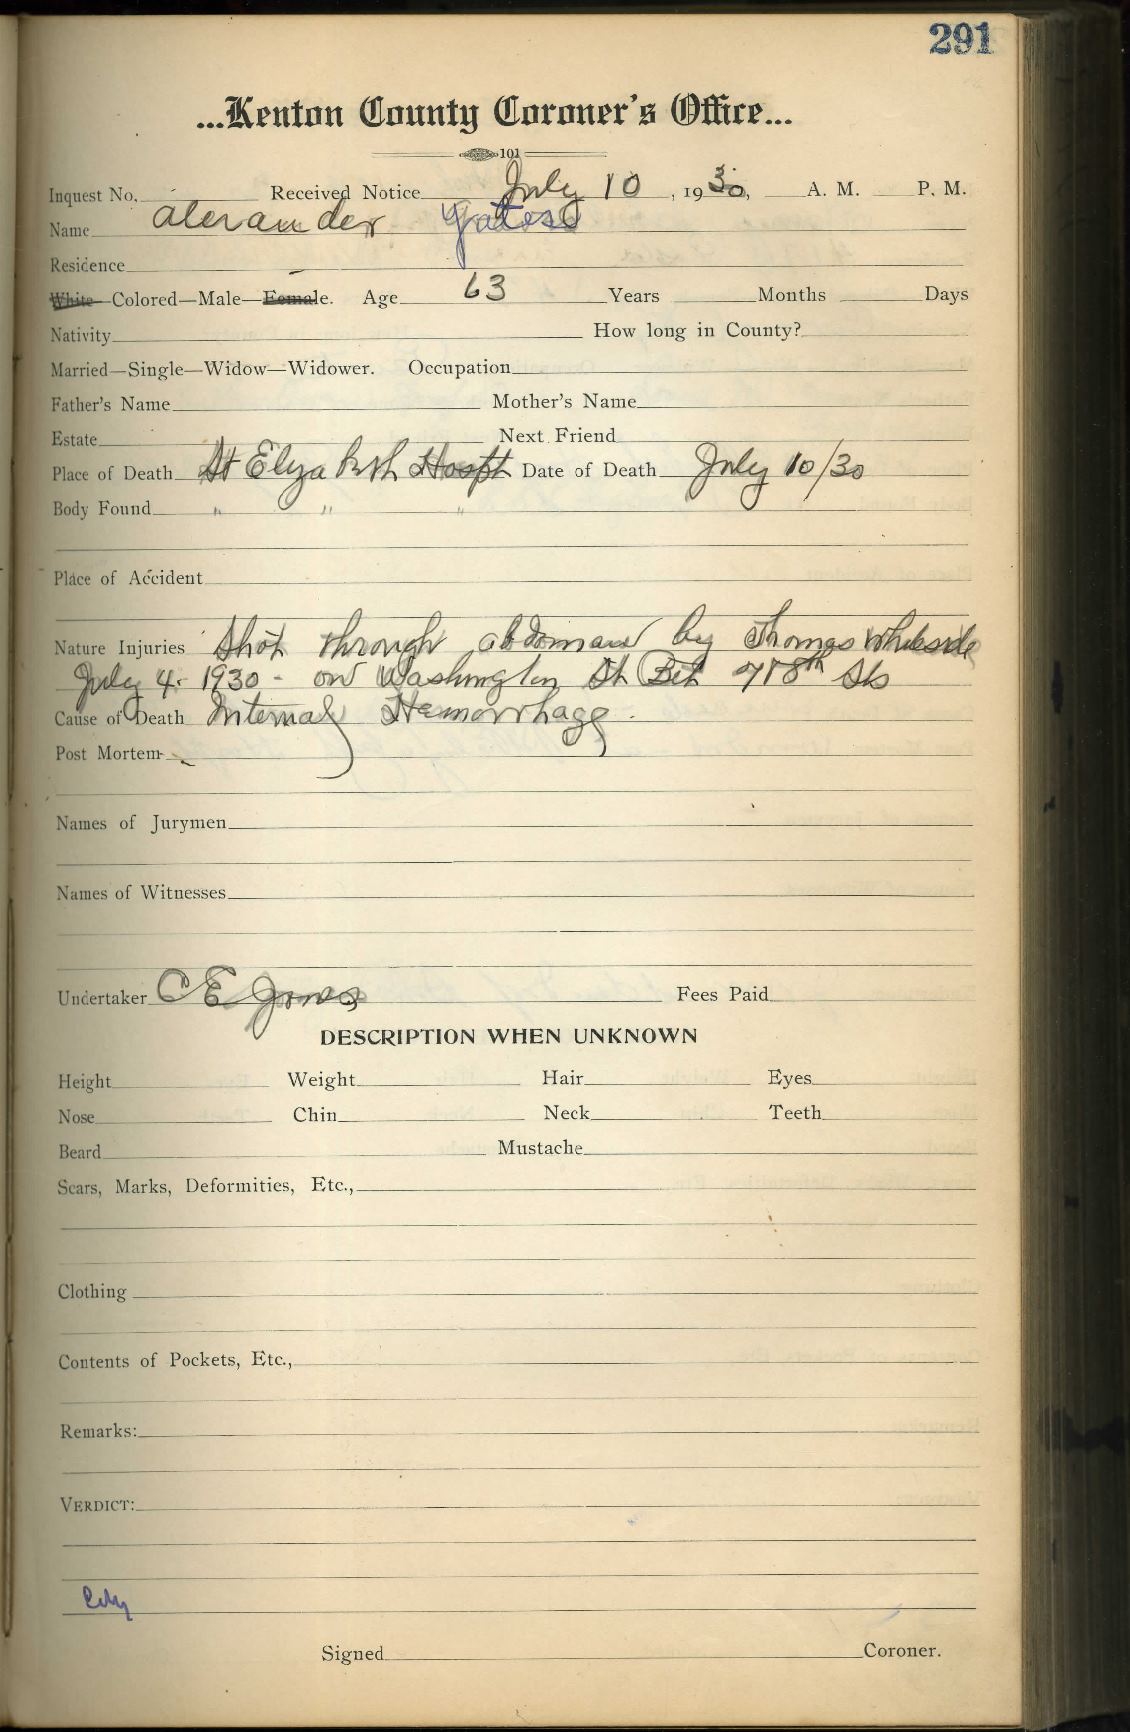 291
...Kenton County Coroner's Office...
101
Inquest No. Received Notice July 10, 1930, A. M. P. M.
Name Alexander Gates
Residence
White—Colored—Male—Female. Age 63 Years Months Days
Nativity How long in County?
Married—Single—Widow—Widower. Occupation
Father's Name Mother's Name
Estate Next Friend
Place of Death St Elizabeth Hospt Date of Death July 10/30
Body Found " " "
Place of Accident
Nature Injuries Shot through abdomen by Thomas Whiteside
July 4. 1930 - on Washington St Bet 7 & 8th Sts
Cause of Death Internal Hemorrhage.
Post Mortem
Names of Jurymen
Names of Witnesses
Undertaker C E Jones Fees Paid
DESCRIPTION WHEN UNKNOWN
Height Weight Hair Eyes
Nose Chin Neck Teeth
Beard Mustache
Scars, Marks, Deformities, Etc.,
Clothing
Contents of Pockets, Etc.,
Remarks:
VERDICT:
City
Signed Coroner.